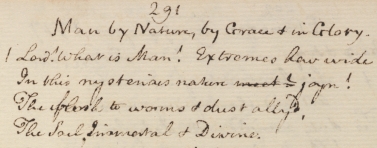 291
Man by Nature, by Grace & in Glory.
1 Lord! What is Man! Extremes how wide
In this mysterious nature meet? joyn!
The flesh to worms & dust ally'd,
The Soul Immortal & Divine.